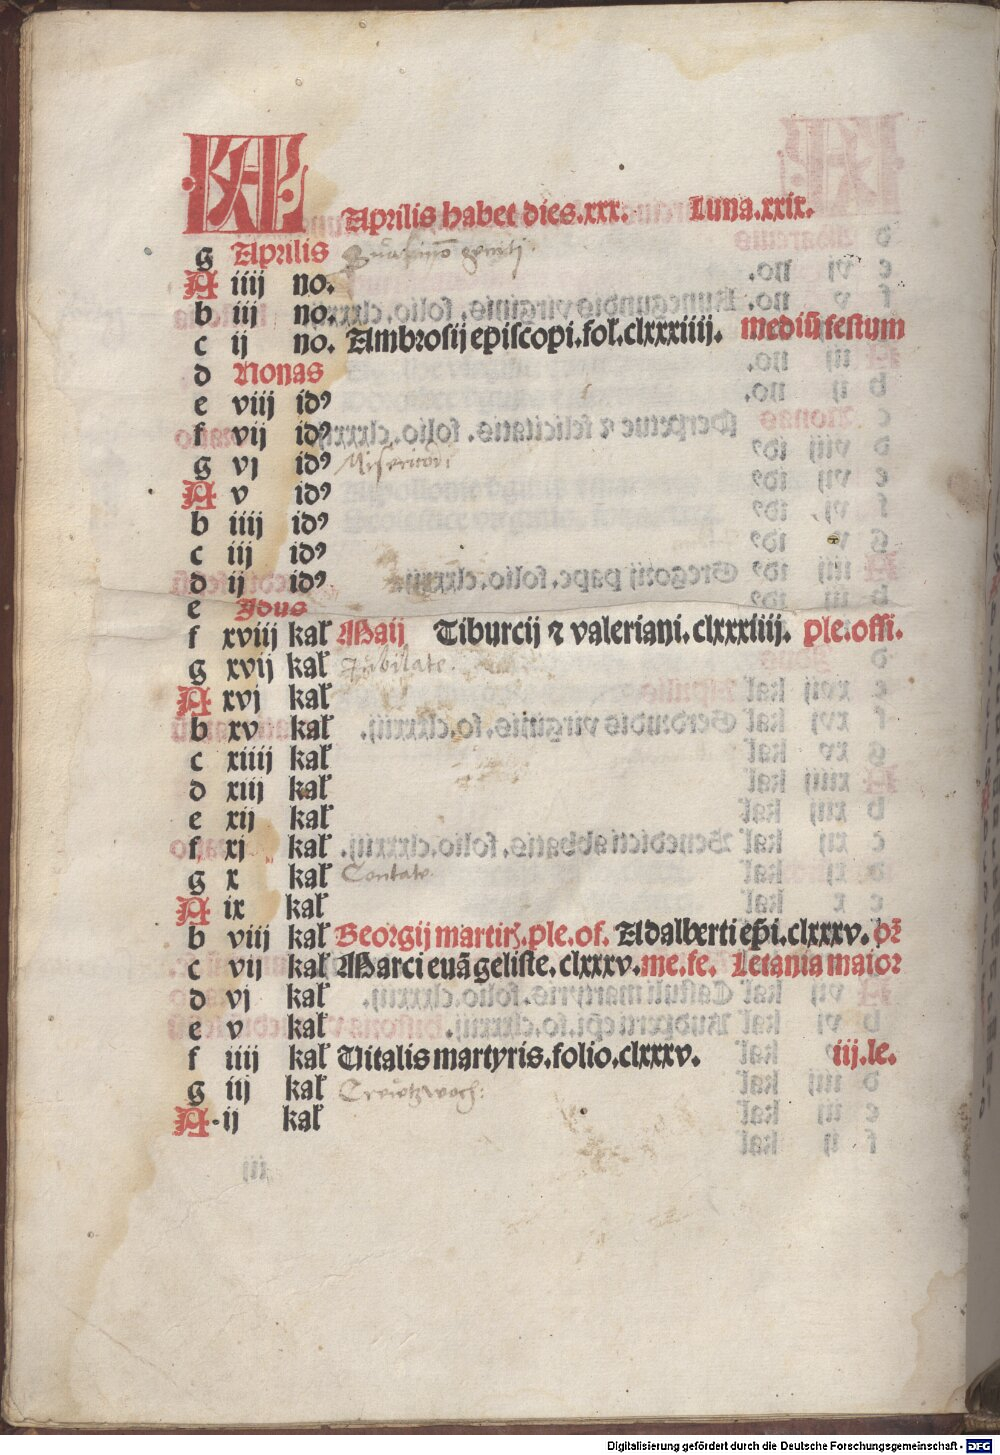 KL Aprilis habet dies.xxx. Luna.xxix.
g Aprilis
A iiij no.
b iij no.
c ij no. Ambrosij episcopi.fol.clxxxiiij. mediū festum
d Nonas
e viij idꝰ
f vij idꝰ
g vj idꝰ Misericordi
A v idꝰ
b iiij idꝰ
c iij idꝰ
d ij idꝰ
e Idus
f xviij kal Maij Tiburcij ⁊ valeriani.clxxxiiij. ple.offi.
g xvij kal Jubilate.
A xvj kal
b xv kal
c xiiij kal
d xiij kal
e xij kal
f xj kal
g x kal Cantate.
A ix kal
b viij kal Georgij martiris.ple.of. Adalberti ep̄i.clxxxv. or̄
c vij kal Marci euāgeliste.clxxxv.me.fe. Letania maior
d vj kal
e v kal
f iiij kal Uitalis martyris.folio.clxxxv. iij.le.
g iij kal Creützwoch:
A ij kal
Digitalisierung gefördert durch die Deutsche Forschungsgemeinschaft - DFG